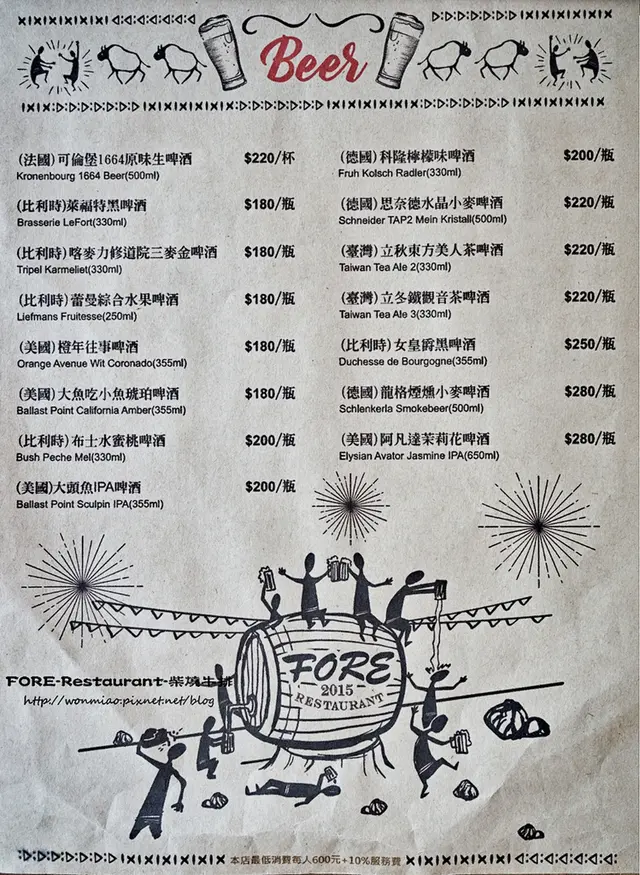 Beer
(法國)可倫堡1664原味生啤酒 $220/杯
Kronenbourg 1664 Beer(500ml)
(比利時)萊福特黑啤酒 $180/瓶
Brasserie LeFort(330ml)
(比利時)喀麥力修道院三麥金啤酒 $180/瓶
Tripel Karmeliet(330ml)
(比利時)蕾曼綜合水果啤酒 $180/瓶
Liefmans Fruitesse(250ml)
(美國)橙年往事啤酒 $180/瓶
Orange Avenue Wit Coronado(355ml)
(美國)大魚吃小魚琥珀啤酒 $180/瓶
Ballast Point California Amber(355ml)
(比利時)布士水蜜桃啤酒 $200/瓶
Bush Peche Mel(330ml)
(美國)大頭魚IPA啤酒 $200/瓶
Ballast Point Sculpin IPA(355ml)
(德國)科隆檸檬味啤酒 $200/瓶
Fruh Kolsch Radler(330ml)
(德國)思奈德水晶小麥啤酒 $220/瓶
Schneider TAP2 Mein Kristall(500ml)
(臺灣)立秋東方美人茶啤酒 $220/瓶
Taiwan Tea Ale 2(330ml)
(臺灣)立冬鐵觀音茶啤酒 $220/瓶
Taiwan Tea Ale 3(330ml)
(比利時)女皇爵黑啤酒 $250/瓶
Duchesse de Bourgogne(355ml)
(德國)龍格煙燻小麥啤酒 $280/瓶
Schlenkerla Smokebeer(500ml)
(美國)阿凡達茉莉花啤酒 $280/瓶
Elysian Avator Jasmine IPA(650ml)
FORE
2015
RESTAURANT
FORE-Restaurant-柴燒牛排
http://wonmiao.pixnet.net/blog
本店最低消費每人600元+10%服務費